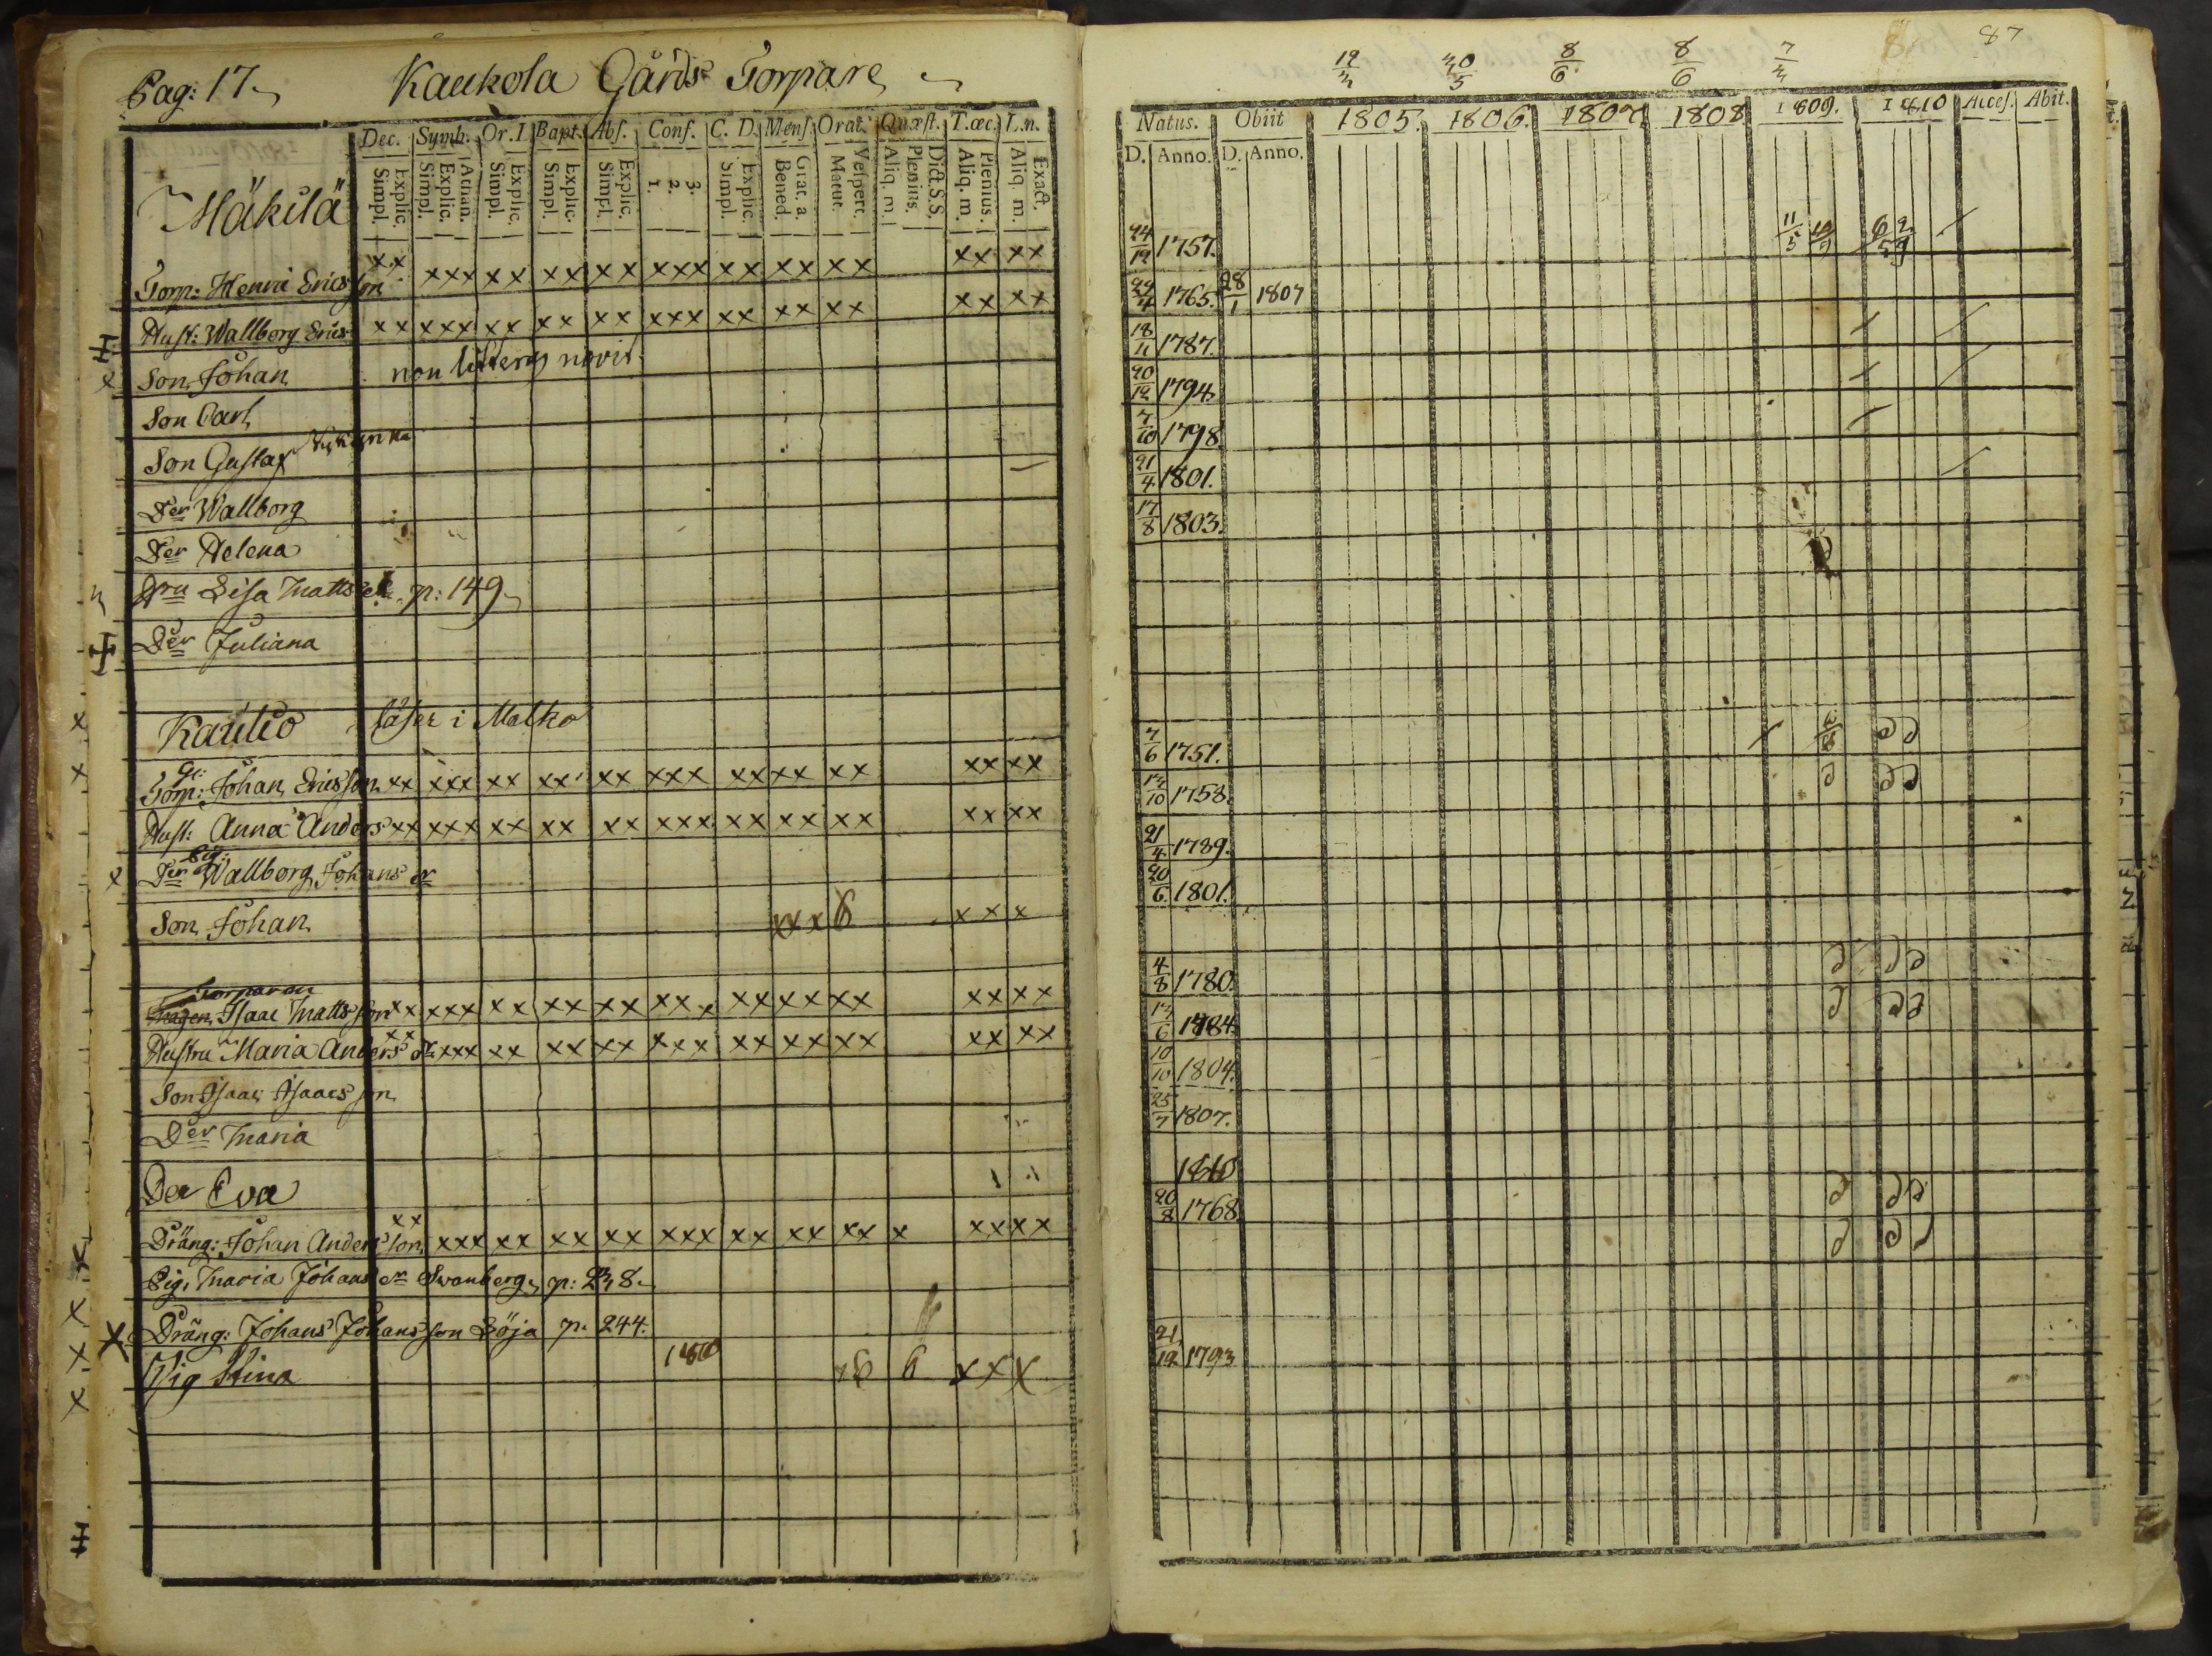 Pag: 17. Kaukola Gårds Torpare
Dec. Symb. Or. I. Bapt. Abs. Conf. C. D. Mens. Orat. Quæst. T. œc. L. n.
Explic. Simpl. Athan. Explic. Simpl. Explic. Simpl. Explic. Simpl. Explic. Simpl. 3. 2. 1. Explic. Simpl. Grat. a. Bened. Vespert. Matut. Dict. S.S. Plenius. Aliq. m. Plenius. Aliq. m. Exact. Aliq. m.
Mäkilä
Torp: Henric Ericsson xx xxx xx xx xx xxx xx xx xx xx xx
Hust: Wallborg Erics xx xxx xx xx xx xxx xx xx xx xx xx
Son Johan non litteras novit
Son Carl
Son Gustaf
Der Wallborg
Der Helena
Lisa Matts p: 149
Der Juliana
Kautio läser i Matko
Torp: Johan Ericsson xx xxx xx xx xx xxx xx xx xx xx xx
Hust: Anna Anders xx xxx xx xx xx xxx xx xx xx xx xx
Pig:
Der Wallborg Johans er
Son Johan x x x
Torparen
Mågen Isaac Mattsson xx xxx xx xx xx xxx xx xx xx xx xx
Hustru Maria Anders dr xx xxx xx xx xx xxx xx xx xx xx xx
Son Isaac Isaacsson
Der Maria
Der Eva
Dräng: Johan Andersson xx xxx xx xx xx xxx xx xx xx x xx xx
Pig. Maria Johans er Swanberg p: 238
Dräng: Johans Johansson Löja p. 244.
Pig Stina 6 xxx
87
12/3 30/5 8/6 8/6 7/3
Natus. Obiit 1805. 1806. 1807. 1808. 1809. 1810 Acces. Abit.
D. Anno. D. Anno.
24/12 1757. 11/5
1765. 28/1 1807
18/11 1787.
20/12 1794
7/10 1798
21/4 1801.
17/8 1803.
7/6 1751.
13/10 1758.
21/4 1789.
20/6 1801.
4/8 1780.
13/6 1784.
10/10 1804.
25/7 1807.
1810
20/8 1768
21/12 1793